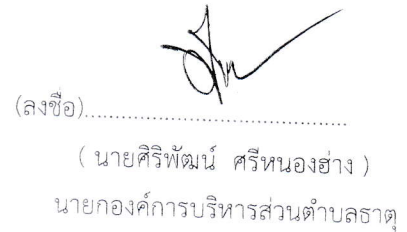 (ลงชื่อ)........................................
( นายศิริพัฒน์ ศรีหนองฮ่าง )
นายกองค์การบริหารส่วนตำบลธาตุ